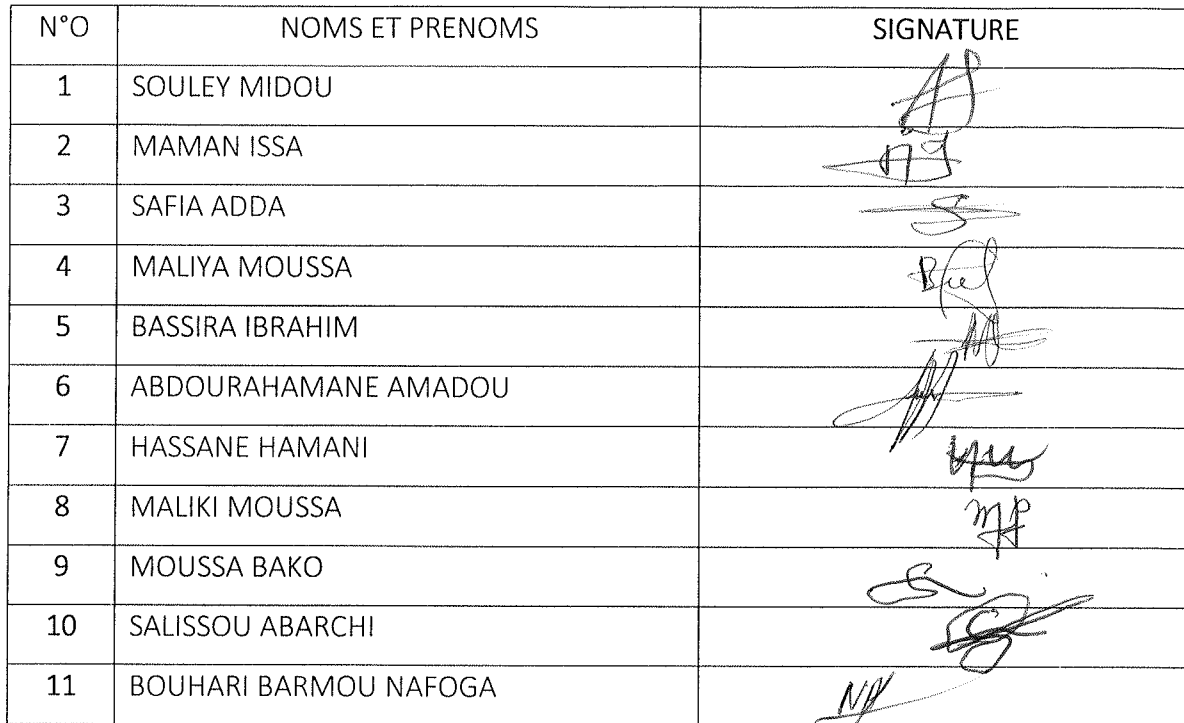 N°O NOMS ET PRENOMS SIGNATURE
1 SOULEY MIDOU
2 MAMAN ISSA
3 SAFIA ADDA
4 MALIYA MOUSSA
5 BASSIRA IBRAHIM
6 ABDOURAHAMANE AMADOU
7 HASSANE HAMANI
8 MALIKI MOUSSA
9 MOUSSA BAKO
10 SALISSOU ABARCHI
11 BOUHARI BARMOU NAFOGA